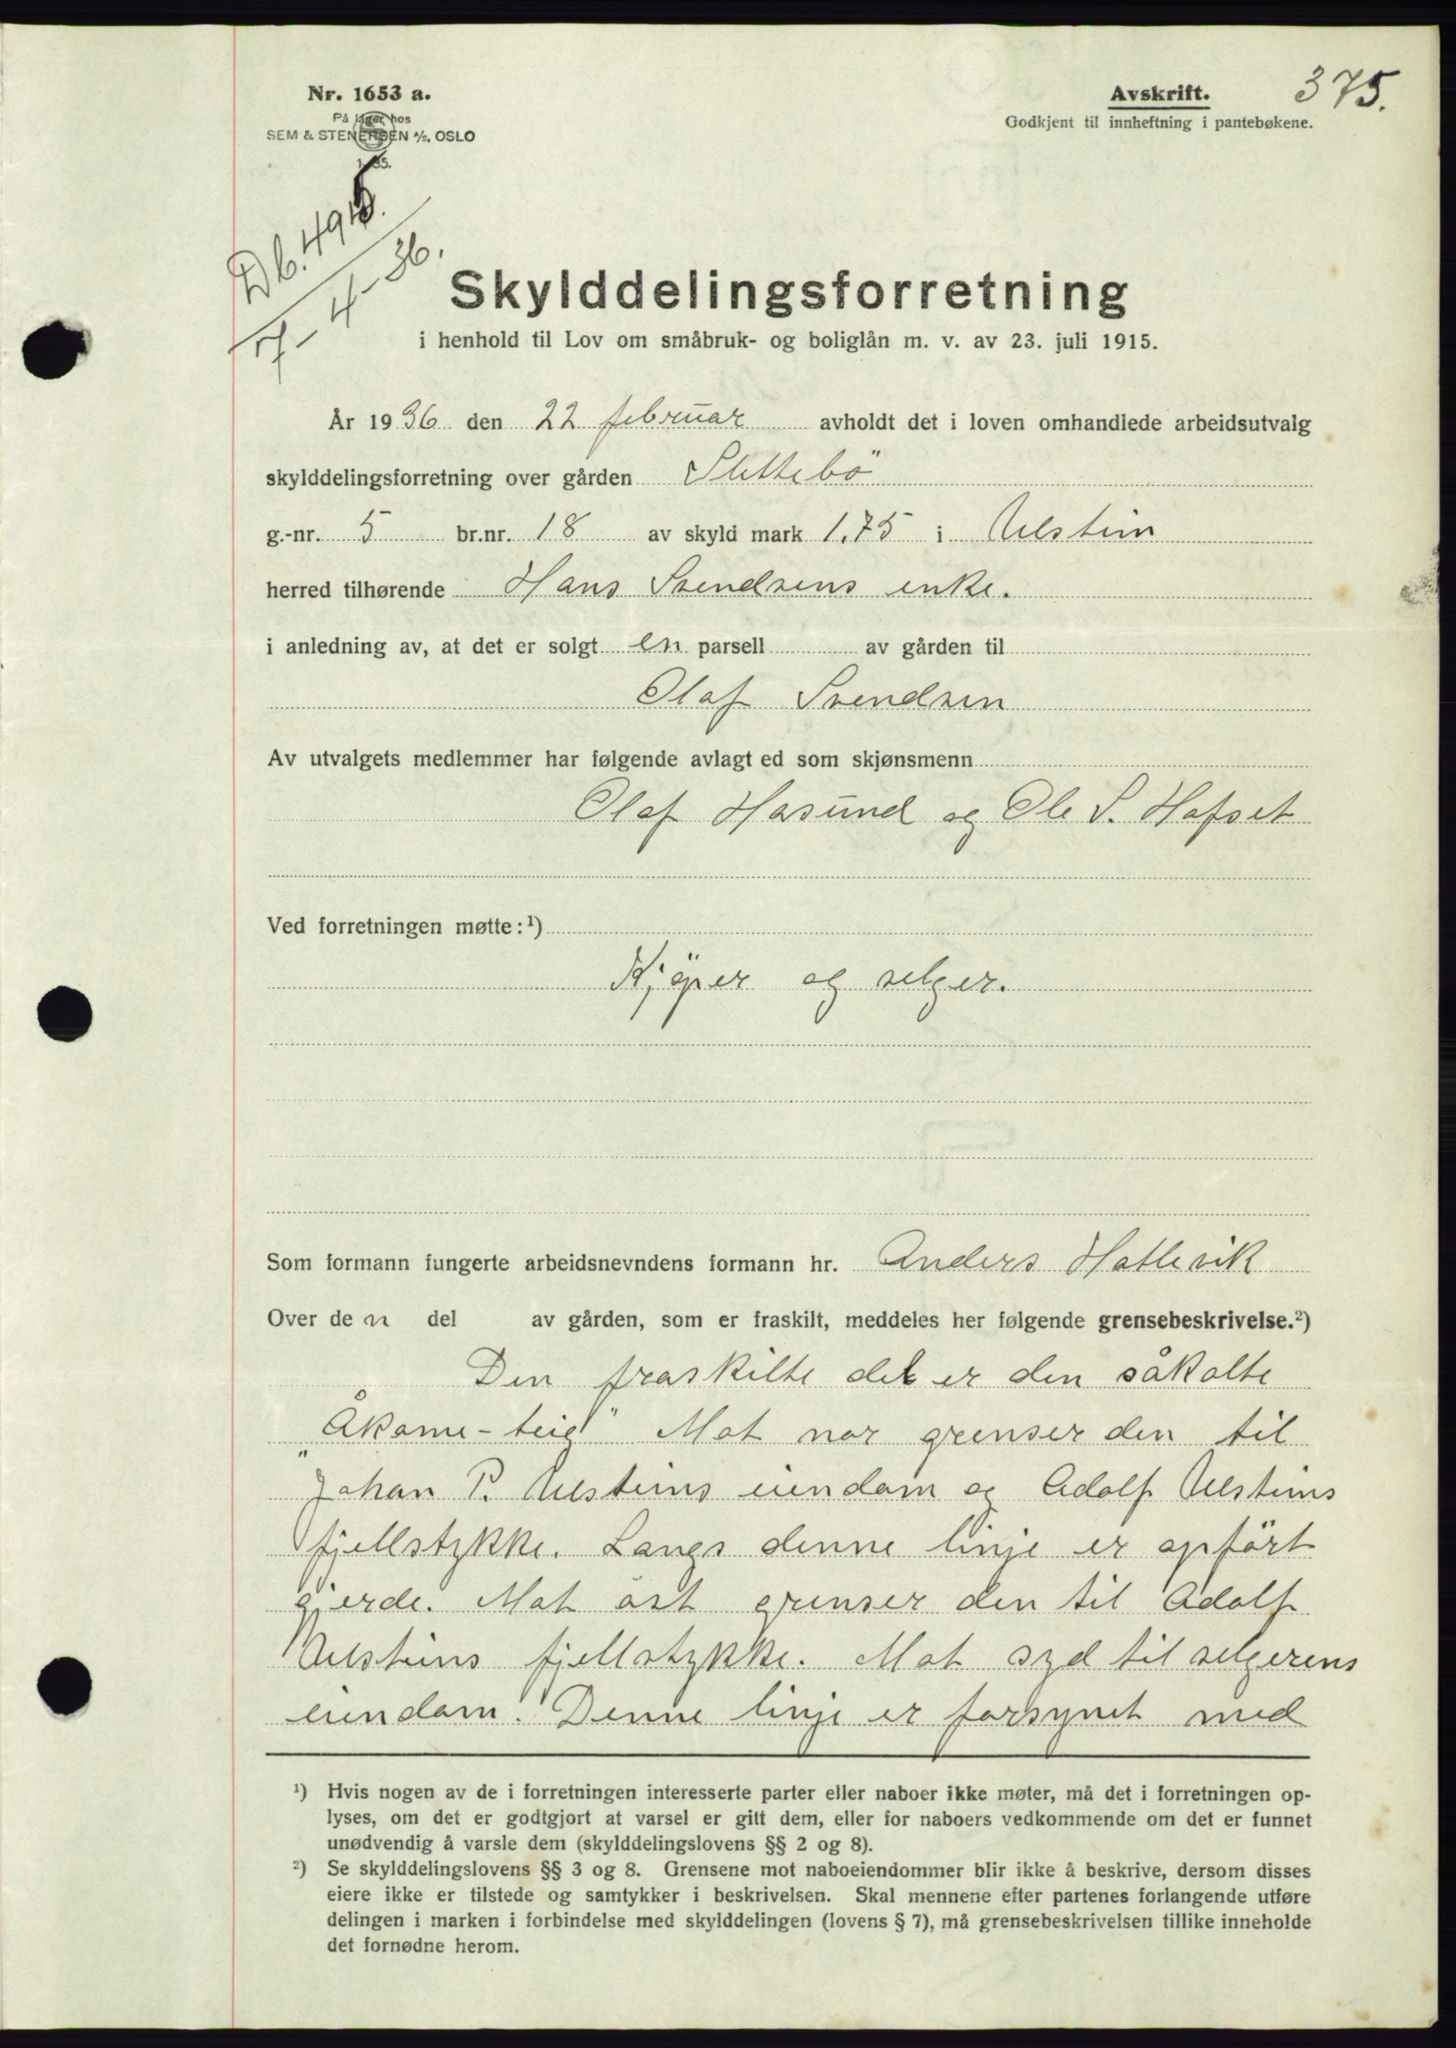 Nr. 1653 a.
På lager hos
SEM & STENERSEN A/S, OSLO
Avskrift.
Godkjent til innheftning i pantebøkene.
375.
Db. 495.
7-4-36.
Skylddelingsforretning
i henhold til Lov om småbruk- og boliglån m. v. av 23. juli 1915.
År 1936 den 22 februar avholdt det i loven omhandlede arbeidsutvalg
skylddelingsforretning over gården Slettebö
g.-nr. 5 br.nr. 18 av skyld mark 1.75 i Ulstein
herred tilhørende Hans Svendsens enke.
i anledning av, at det er solgt en parsell av gården til
Olaf Svendsen
Av utvalgets medlemmer har følgende avlagt ed som skjønsmenn
Olaf Hasund og Ole S. Hafset
Ved forretningen møtte: 1)
Kjöper og selger.
Som formann fungerte arbeidsnevndens formann hr. Anders Hatlevik
Over den del av gården, som er fraskilt, meddeles her følgende grensebeskrivelse.2)
Den fraskilte del er den såkalte
"Åkame-teig" Mot nor grenser den til
Johan P. Ulsteins eiendom og Adolf Ulsteins
fjellstykke. Langs denne linje er opfört
gjerde. Mot öst grenser den til Adolf
Ulsteins fjellstykke. Mot syd til selgerens
eiendom. Denne linje er forsynet med
1) Hvis nogen av de i forretningen interesserte parter eller naboer ikke møter, må det i forretningen op-
lyses, om det er godtgjort at varsel er gitt dem, eller for naboers vedkommende om det er funnet
unødvendig å varsle dem (skylddelingslovens §§ 2 og 8).
2) Se skylddelingslovens §§ 3 og 8. Grensene mot naboeiendommer blir ikke å beskrive, dersom disses
eiere ikke er tilstede og samtykker i beskrivelsen. Skal mennene efter partenes forlangende utføre
delingen i marken i forbindelse med skylddelingen (lovens § 7), må grensebeskrivelsen tillike inneholde
det fornødne herom.